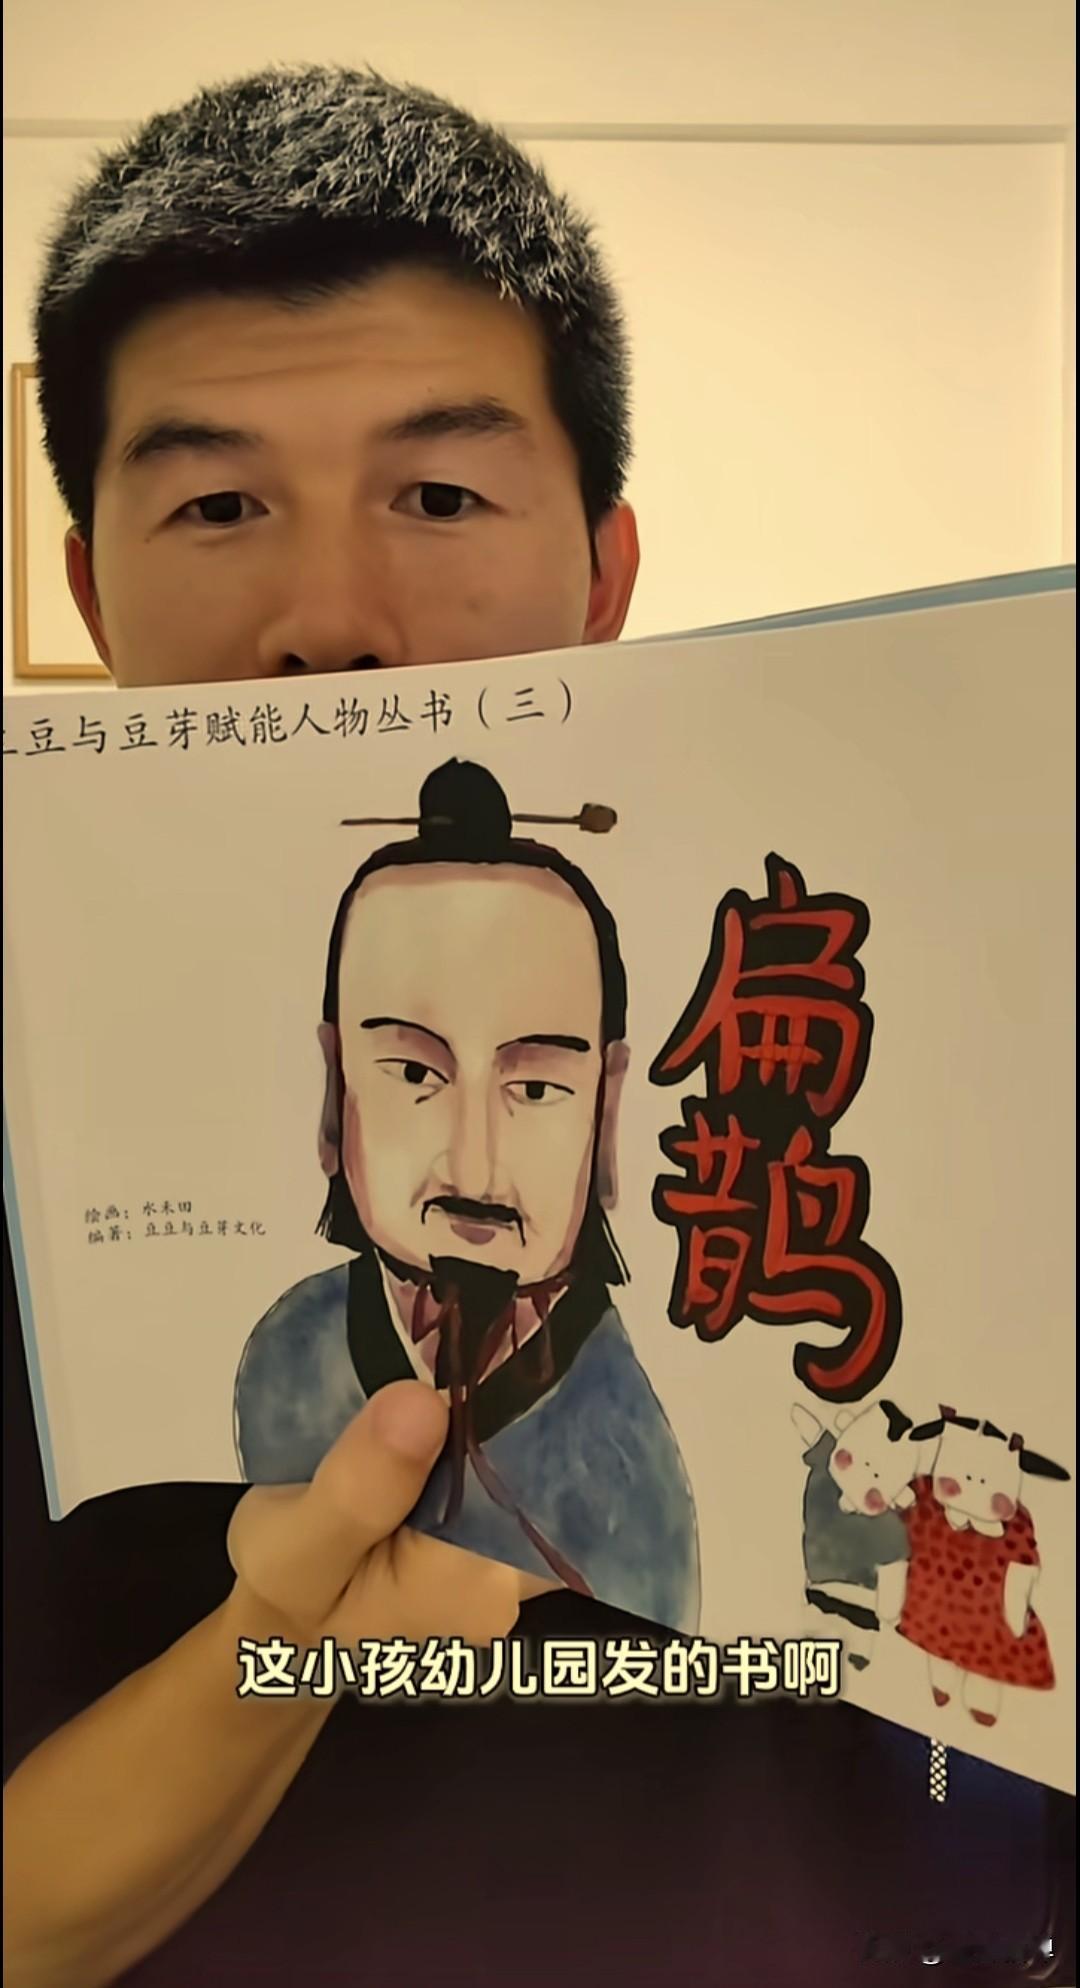 豆与豆芽赋能人物丛书（三）
扁鹊
绘画：水禾田
编著：豆豆与豆芽文化
这小孩幼儿园发的书啊